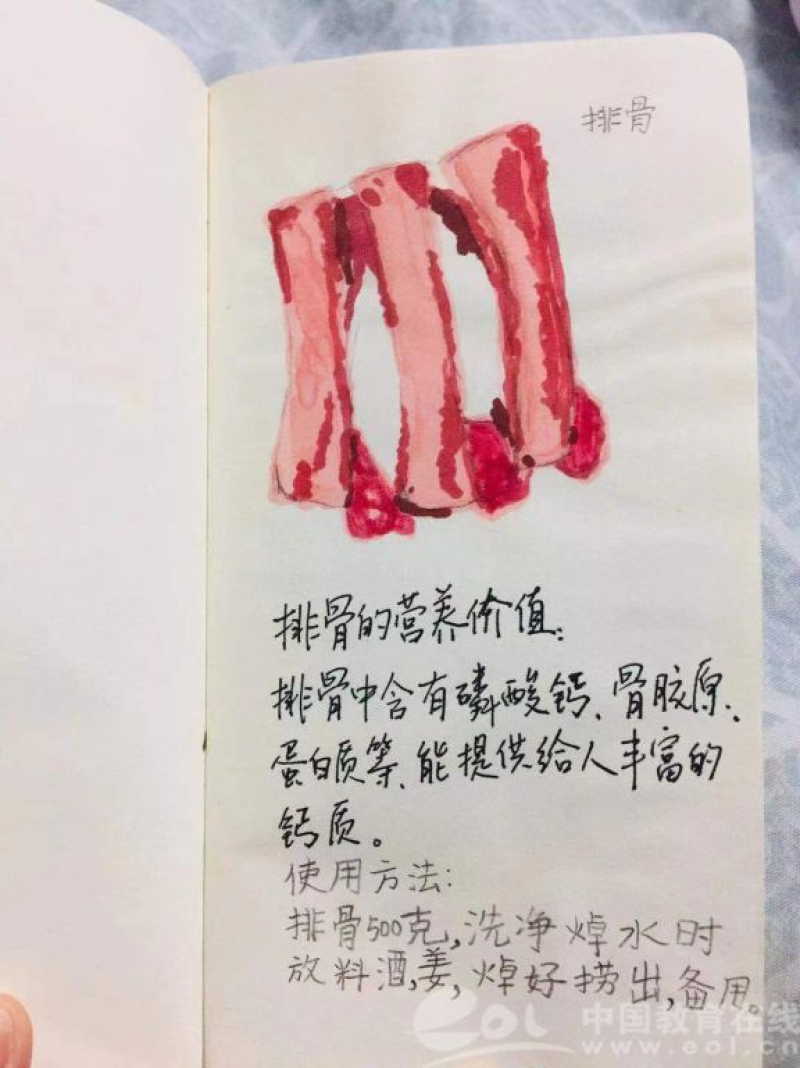 排骨
排骨的营养价值:
排骨中含有磷酸钙、骨胶原、
蛋白质等、能提供给人丰富的
钙质。
使用方法:
排骨500克,洗净焯水时
放料酒,姜,焯好捞出,备用。
eol 中国教育在线
www.eol.cn